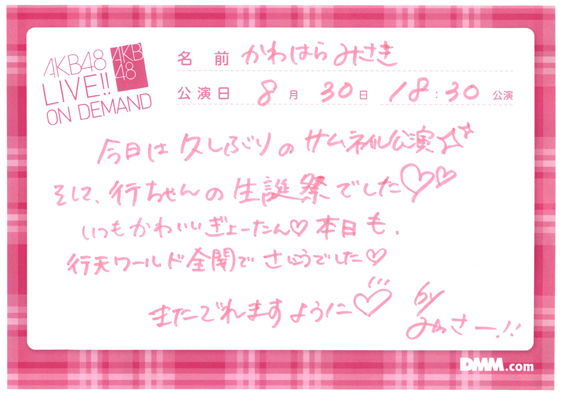 AKB48
LIVE!!
ON DEMAND
AKB
48
名前 かわはらみさき
公演日 8月30日 18:30公演
今日は久しぶりのサムネイル公演☆
そして、行ちゃんの生誕祭でした♡♡
いつもかわいいぎょーたん♡本日も、
行天ワールド全開でさいこうでした♡
またでれますように♡
by
みぃさー!!
DMM.com